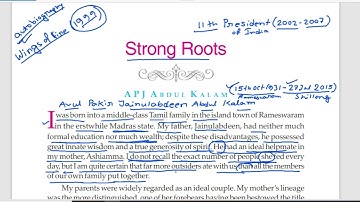 Autobiography
Wings of fire
1999
11th President (2002-2007)
of India
Strong Roots
APJ ABDUL KALAM
(15th oct 1931 - 27 Jul 2015)
Rameswaram Shillong
Avul Pakir Jainulabdeen Abdul Kalam
I was born into a middle-class Tamil family in the island town of Rameswaram
in the erstwhile Madras state. My father, Jainulabdeen, had neither much
formal education nor much wealth; despite these disadvantages, he possessed
great innate wisdom and a true generosity of spirit. He had an ideal helpmate in
my mother, Ashiamma. I do not recall the exact number of people she fed every
day, but I am quite certain that far more outsiders ate with us than all the members
of our own family put together.
My parents were widely regarded as an ideal couple. My mother's lineage
was the more distinguished, one of her forebears having been bestowed the